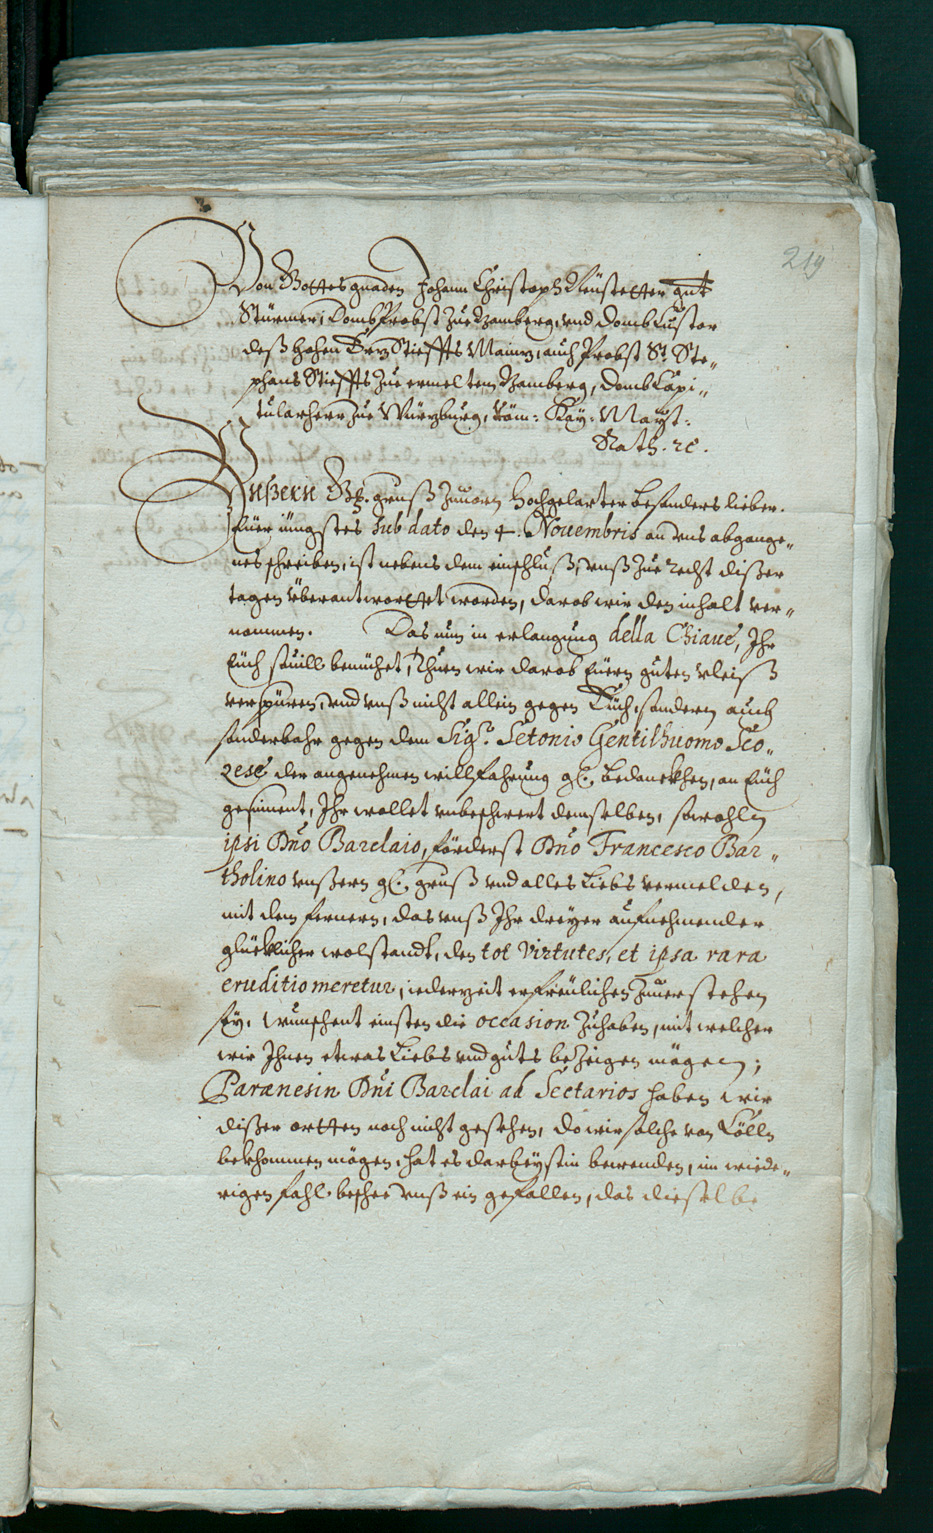 219
Von Gottes gnaden Johann Christoph Neüstetter gnt
Stürmer, Domb Probst Zue Bamberg, vnd Domb Custor
deß hohen Ertz Stieffts Maintz, auch Probst St. Ste„
phans Stieffts Zue ermeltem Bamberg, Domb Capi„
tularherr Zue Würtzburg, Röm: Kay: Mayst:
Rath. ꝛc.
Vnßern gruß Zuuorn Hochgelarter besonders lieber.
Eüer jüngstes sub dato den 4. Nouembris an vns abgange„
nes schreiben, ist nebens dem einschluß, vnß Zue recht dißer
tagen überantworttet worden, darob wir den inhalt ver„
nommen. Das nun in erlangung della Chiaue, Ihr
Eüch souill bemühet, Thuen wir darob Eüern guten vleiß
verspüren, vnd vnß nicht allein gegen Eüch, sondern auch
sonderbahr gegen dem Sigr. Setonio Gentilhuomo Sco„
zese, der angenehmen willfahrung gn. bedanckhen, an Eüch
gesinnent, Ihr wollet vnbeschwert demselben, sowohln
ipsi Dno Barclaio, förderst Dno Francesco Bar„
tholino vnßern gn. gruß vnd alles Liebs vermelden,
mit dem fernern, das vnß Ihr dreyer aufnehmender
glücklicher wolstandt, den tot virtutes, et ipsa rara
eruditio meretur, iederzeit erfreülichen Zuuerstehen
sey, wünschent einsten die occasion Zuhaben, mit welcher
wir Ihnen etwas Liebs vnd guts beZeigen mögen;
Parænesin Dni Barclai ad Sectarios haben wir
dißer ortten noch nicht gesehen, do wir solche von Cölln
bekhommen mögen, hat es darbey sein bewenden, im wiede„
rigen fahl, beschee vnß ein gefallen, das dieselbe